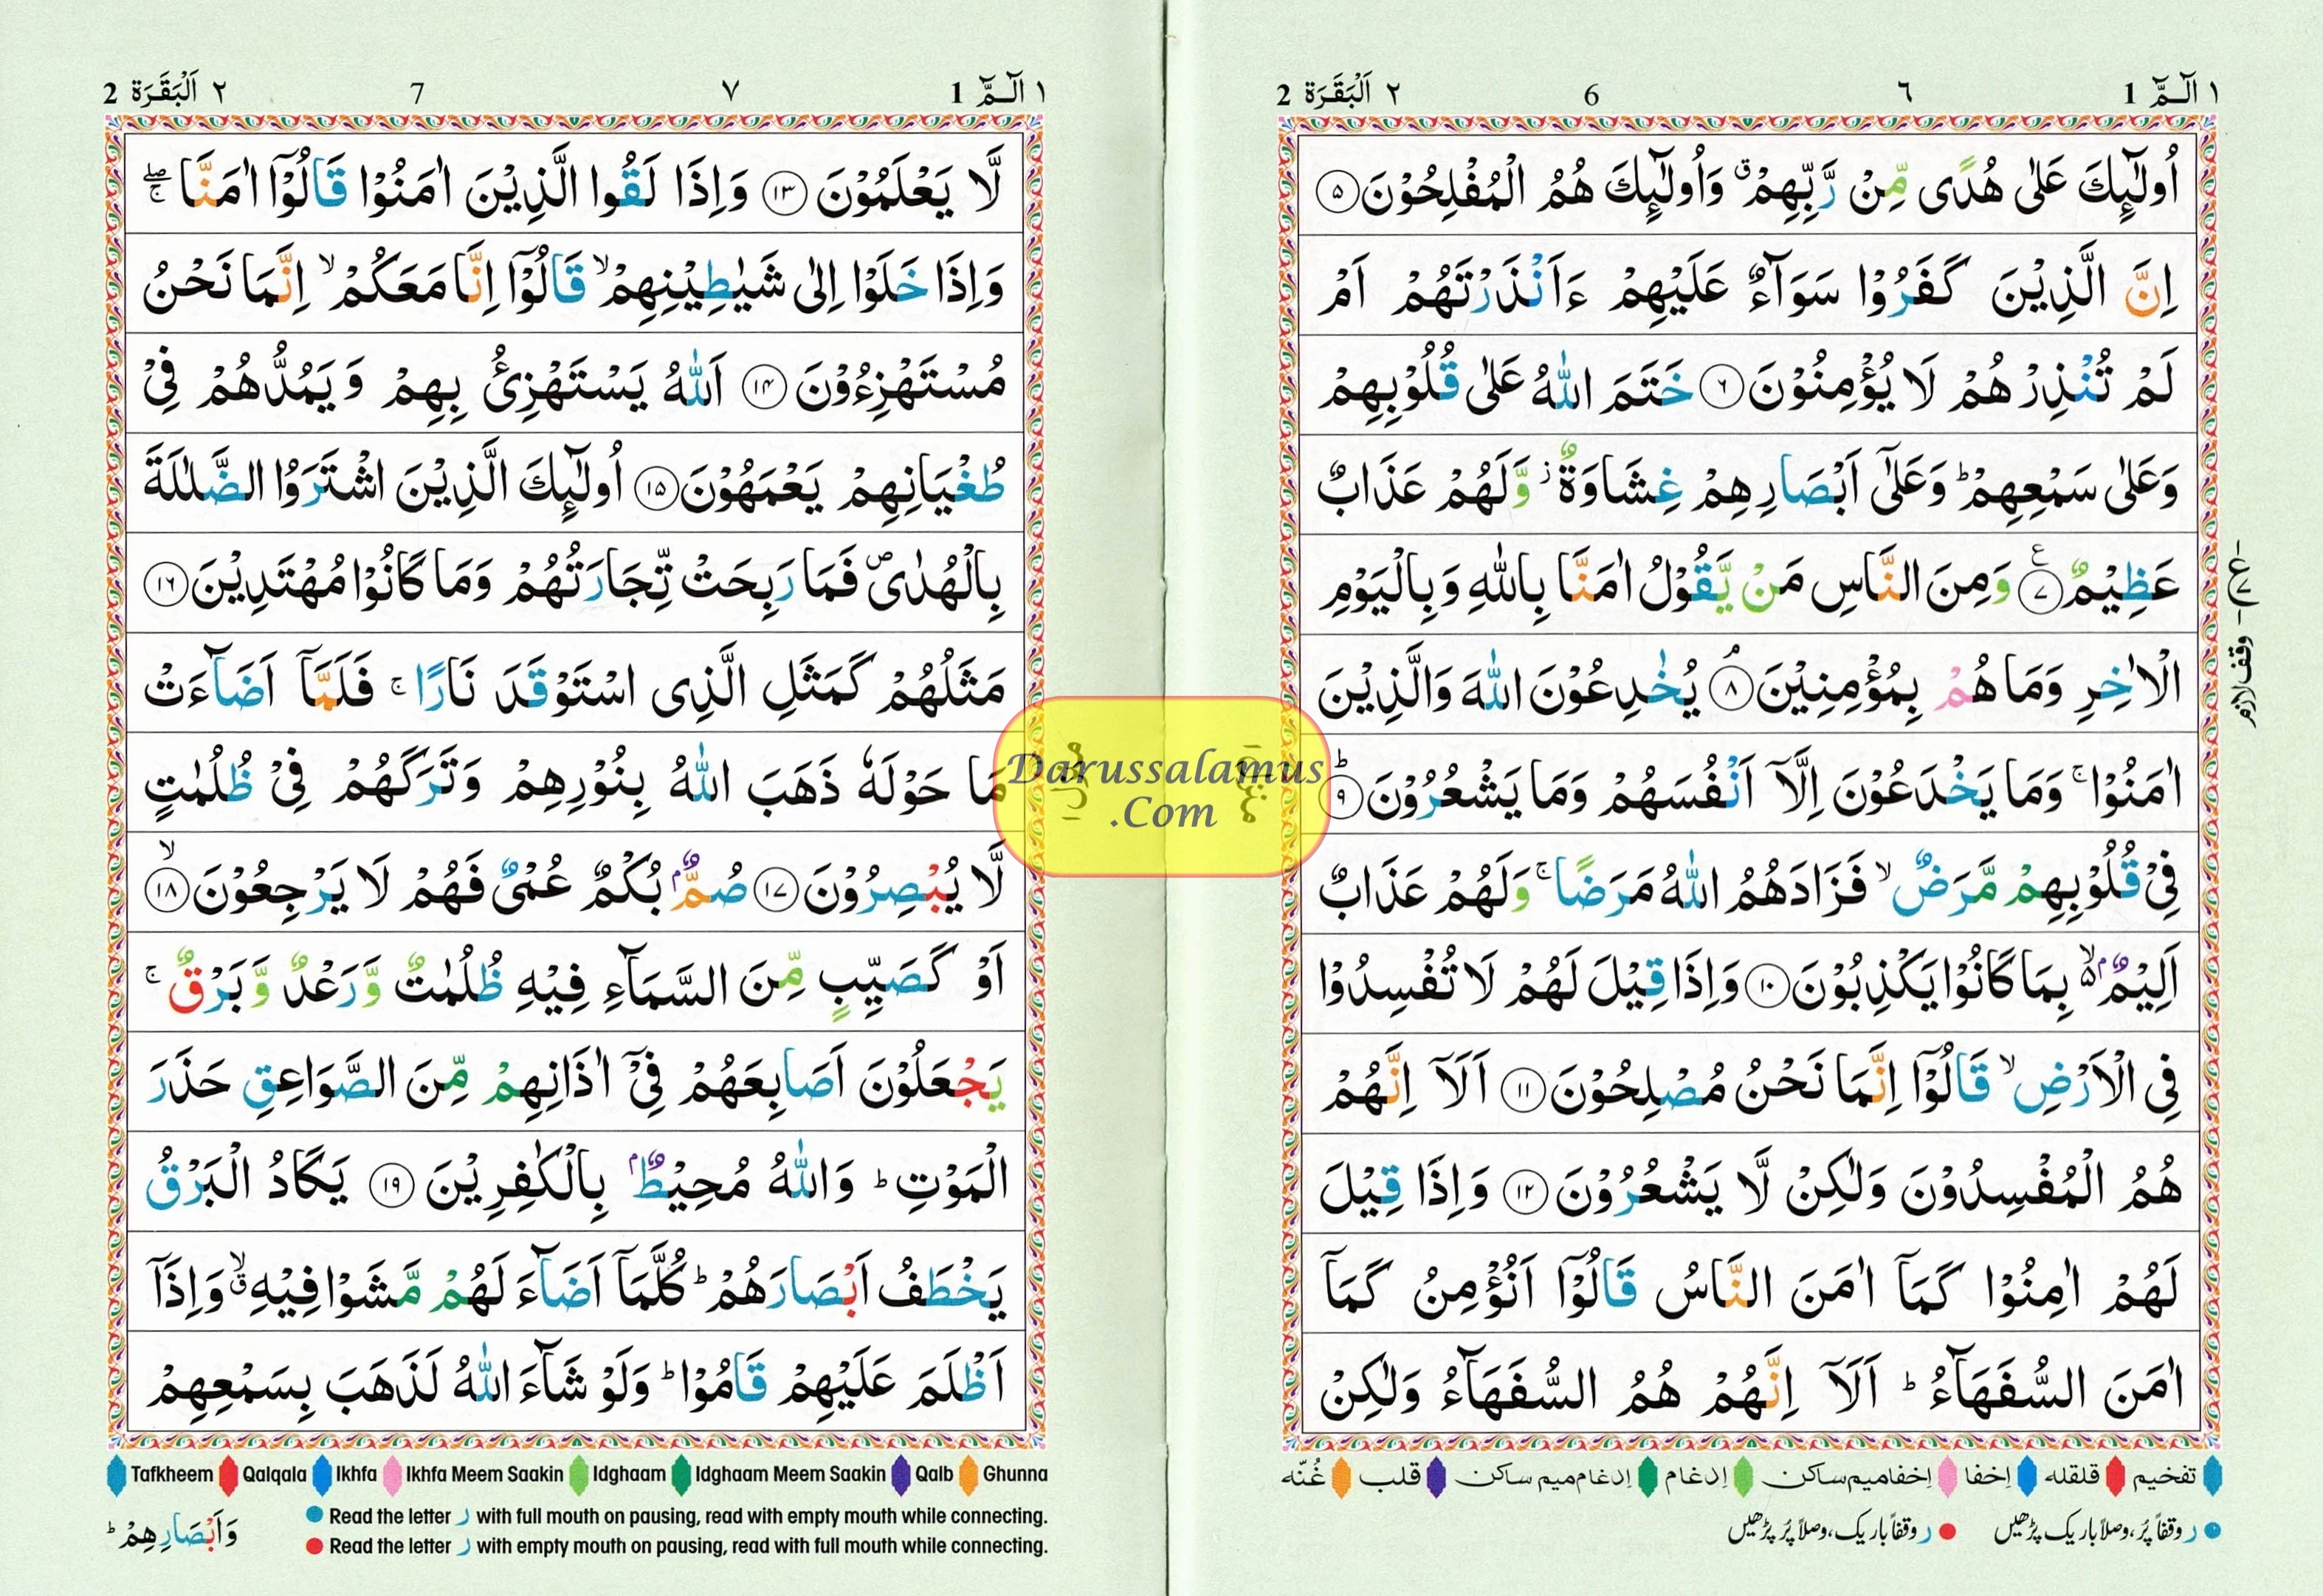 ١ الٓـمّٓ 1 ٦ 6 ٢ اَلْبَقَرَة 2
اُولٰٓئِكَ عَلٰى هُدًى مِّنْ رَّبِّهِمْ ۗ وَاُولٰٓئِكَ هُمُ الْمُفْلِحُوْنَ ۝۵
اِنَّ الَّذِيْنَ كَفَرُوْا سَوَآءٌ عَلَيْهِمْ ءَاَنْذَرْتَهُمْ اَمْ
لَمْ تُنْذِرْهُمْ لَا يُؤْمِنُوْنَ ۝۶ خَتَمَ اللّٰهُ عَلٰى قُلُوْبِهِمْ
وَعَلٰى سَمْعِهِمْ ؕ وَعَلٰٓى اَبْصَارِهِمْ غِشَاوَةٌ ؗ وَّلَهُمْ عَذَابٌ
عَظِيْمٌ ۝۷ ع وَمِنَ النَّاسِ مَنْ يَّقُوْلُ اٰمَنَّا بِاللّٰهِ وَبِالْيَوْمِ
الْاٰخِرِ وَمَا هُمْ بِمُؤْمِنِيْنَ ۝۸ۘ يُخٰدِعُوْنَ اللّٰهَ وَالَّذِيْنَ
اٰمَنُوْا ۚ وَمَا يَخْدَعُوْنَ اِلَّآ اَنْفُسَهُمْ وَمَا يَشْعُرُوْنَ ۝۹ؕ
فِيْ قُلُوْبِهِمْ مَّرَضٌ ۙ فَزَادَهُمُ اللّٰهُ مَرَضًا ۚ وَلَهُمْ عَذَابٌ
اَلِيْمٌۢ ۬ۙ۵ بِمَا كَانُوْا يَكْذِبُوْنَ ۝۱۰ وَاِذَا قِيْلَ لَهُمْ لَا تُفْسِدُوْا
فِي الْاَرْضِ ۙ قَالُوْٓا اِنَّمَا نَحْنُ مُصْلِحُوْنَ ۝۱۱ اَلَآ اِنَّهُمْ
هُمُ الْمُفْسِدُوْنَ وَلٰكِنْ لَّا يَشْعُرُوْنَ ۝۱۲ وَاِذَا قِيْلَ
لَهُمْ اٰمِنُوْا كَمَآ اٰمَنَ النَّاسُ قَالُوْٓا اَنُؤْمِنُ كَمَآ
اٰمَنَ السُّفَهَآءُ ؕ اَلَآ اِنَّهُمْ هُمُ السُّفَهَآءُ وَلٰكِنْ
وقف لازم
تفخیم قلقله إخفا إخفا میم ساکن إدغام إدغام میم ساکن قلب غُنّه
ر وقفاً پُر، وصلاً باریک پڑھیں ر وقفاً باریک، وصلاً پُر پڑھیں
Darussalamus
.Com
١ الٓـمّٓ 1 ٧ 7 ٢ اَلْبَقَرَة 2
لَّا يَعْلَمُوْنَ ۝۱۳ وَاِذَا لَقُوا الَّذِيْنَ اٰمَنُوْا قَالُوْٓا اٰمَنَّا ۖۚ
وَاِذَا خَلَوْا اِلٰى شَيٰطِيْنِهِمْ ۙ قَالُوْٓا اِنَّا مَعَكُمْ ۙ اِنَّمَا نَحْنُ
مُسْتَهْزِءُوْنَ ۝۱۴ اَللّٰهُ يَسْتَهْزِئُ بِهِمْ وَيَمُدُّهُمْ فِيْ
طُغْيَانِهِمْ يَعْمَهُوْنَ ۝۱۵ اُولٰٓئِكَ الَّذِيْنَ اشْتَرَوُا الضَّلٰلَةَ
بِالْهُدٰى ۪ فَمَا رَبِحَتْ تِّجَارَتُهُمْ وَمَا كَانُوْا مُهْتَدِيْنَ ۝۱۶
مَثَلُهُمْ كَمَثَلِ الَّذِى اسْتَوْقَدَ نَارًا ۚ فَلَمَّآ اَضَآءَتْ
مَا حَوْلَهٗ ذَهَبَ اللّٰهُ بِنُوْرِهِمْ وَتَرَكَهُمْ فِيْ ظُلُمٰتٍ
لَّا يُبْصِرُوْنَ ۝۱۷ صُمٌّۢ بُكْمٌ عُمْيٌ فَهُمْ لَا يَرْجِعُوْنَ ۝۱۸ۙ
اَوْ كَصَيِّبٍ مِّنَ السَّمَآءِ فِيْهِ ظُلُمٰتٌ وَّرَعْدٌ وَّبَرْقٌ ۚ
يَجْعَلُوْنَ اَصَابِعَهُمْ فِيْٓ اٰذَانِهِمْ مِّنَ الصَّوَاعِقِ حَذَرَ
الْمَوْتِ ؕ وَاللّٰهُ مُحِيْطٌۢ بِالْكٰفِرِيْنَ ۝۱۹ يَكَادُ الْبَرْقُ
يَخْطَفُ اَبْصَارَهُمْ ؕ كُلَّمَآ اَضَآءَ لَهُمْ مَّشَوْا فِيْهِ ۙۗ وَاِذَآ
اَظْلَمَ عَلَيْهِمْ قَامُوْا ؕ وَلَوْ شَآءَ اللّٰهُ لَذَهَبَ بِسَمْعِهِمْ
Tafkheem Qalqala Ikhfa Ikhfa Meem Saakin Idghaam Idghaam Meem Saakin Qalb Ghunna
Read the letter ر with full mouth on pausing, read with empty mouth while connecting.
Read the letter ر with empty mouth on pausing, read with full mouth while connecting.
وَاَبْصَارِهِمْ ؕ